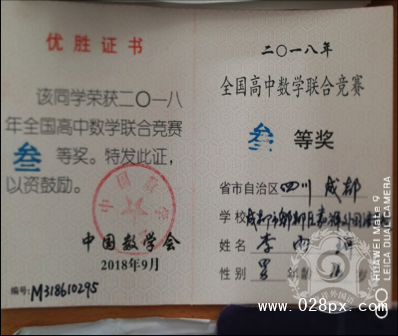 优胜证书
该同学荣获二〇一八
年全国高中数学联合竞赛
叁 等奖。特发此证，
以资鼓励。
中国数学会
中国数学会
2018年9月
编号:M318610295
二〇一八年
全国高中数学联合竞赛
叁 等奖
省市自治区 四川 成都
学校 成都市郫都区嘉祥外国
姓名 李
性别 男 年龄
HUAWEI Mate 9
LEICA DUAL CAMERA
www.028px.com